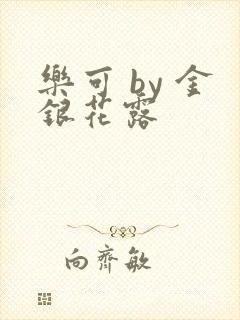 樂可 by 金
銀花露
向齊敏